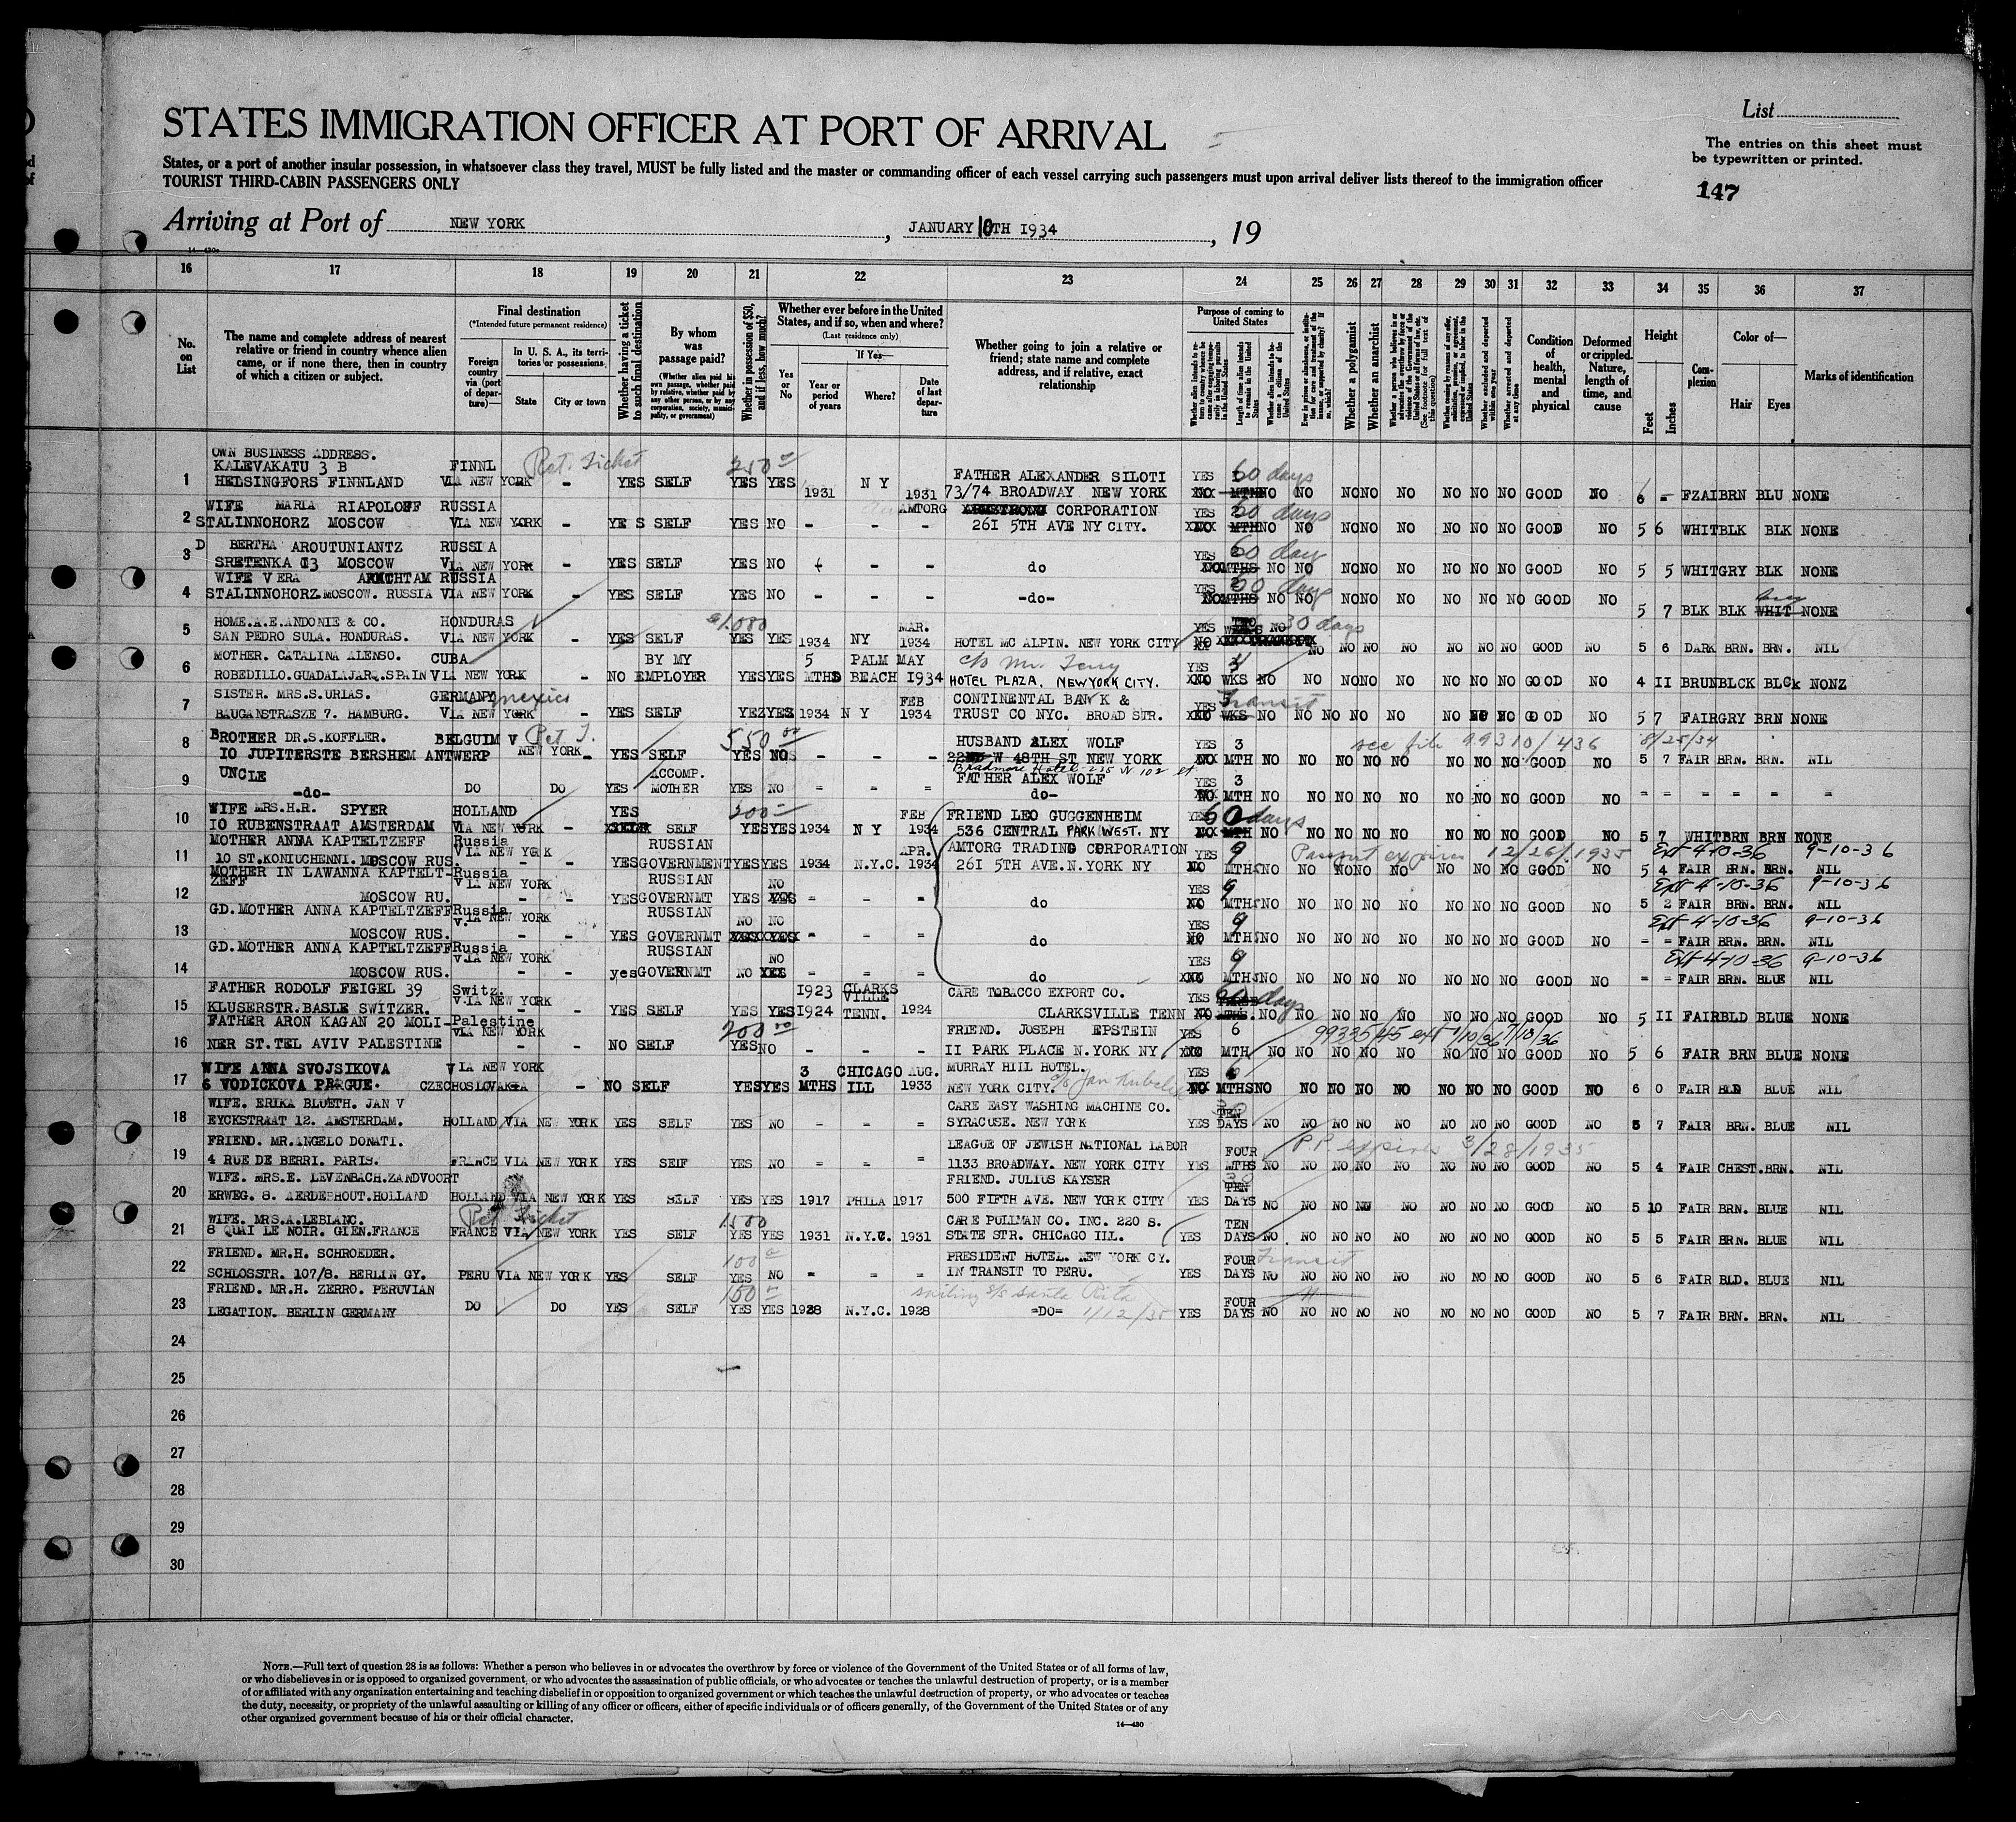 STATES IMMIGRATION OFFICER AT PORT OF ARRIVAL
List
The entries on this sheet must
be typewritten or printed.
147
States, or a port of another insular possession, in whatsoever class they travel, MUST be fully listed and the master or commanding officer of each vessel carrying such passengers must upon arrival deliver lists thereof to the immigration officer
TOURIST THIRD-CABIN PASSENGERS ONLY
Arriving at Port of NEW YORK , JANUARY 10TH 1934 , 19
16 17 18 19 20 21 22 23 24 25 26 27 28 29 30 31 32 33 34 35 36 37
No. on List
The name and complete address of nearest relative or friend in country whence alien came, or if none there, then in country of which a citizen or subject.
Final destination
(*Intended future permanent residence)
Foreign country via (port of departure)—
In U. S. A., its territories or possessions
State
City or town
Whether having a ticket to such final destination
By whom was passage paid?
(Whether alien paid his own passage, whether paid by relative, whether paid by any other person, or by any corporation, society, municipality, or government)
Whether in possession of $50, and if less, how much?
Whether ever before in the United States, and if so, when and where?
(Last residence only)
Yes or No
If Yes—
Year or period of years
Where?
Date of last departure
Whether going to join a relative or friend; state name and complete address, and if relative, exact relationship
Purpose of coming to United States
Length of time alien intends to remain in the United States
Whether alien intends to become a citizen of the United States
Whether a polygamist
Whether an anarchist
Whether arrested and deported at any time
Condition of health, mental and physical
Deformed or crippled. Nature, length of time, and cause
Height
Feet
Inches
Complexion
Color of—
Hair
Eyes
Marks of identification
OWN BUSINESS ADDRESS.
KALEVAKATU 3 B FINNL Ret. Ticket 250 00 FATHER ALEXANDER SILOTI YES 60 days
1 HELSINGFORS FINNLAND VIA NEW YORK - YES SELF YES YES 1931 N Y 1931 73/74 BROADWAY NEW YORK NO MTH NO NO NO NO NO NO NO NO GOOD NO 6 - FZAI BRN BLU NONE
WIFE MARIA RIAPOLOFF RUSSIA AMTORG CORPORATION YES 60 days
2 STALINNOHORZ MOSCOW VIA NEW YORK - YE S SELF YES NO - - - 261 5TH AVE NY CITY. MTH NO NO NO NO NO NO NO NO GOOD NO 5 6 WHIT BLK BLK NONE
D BERTHA AROUTUNIANTZ RUSSIA YES 60 days
3 SRETENKA 13 MOSCOW VIA NEW YORK YES SELF YES NO - - do MTHS NO NO NO NO NO NO NO NO GOOD NO 5 5 WHIT GRY BLK NONE
WIFE VERA RUSSIA YES 60 days
4 STALINNOHORZ.MOSCOW. RUSSIA VIA NEW YORK - YES SELF YES NO - - - -do- NO MTHS NO NO NO NO NO NO NO NO GOOD NO 5 7 BLK BLK WHIT NONE
HOME.A.E.ANDONIE & CO. HONDURAS $1.080 MAR. YES TWO NO 30 days
5 SAN PEDRO SULA. HONDURAS. VIA NEW YORK - YES SELF YES YES 1934 NY 1934 HOTEL MC ALPIN. NEW YORK CITY NO NO NO NO NO NO NO NO GOOD NO 5 6 DARK BRN. BRN. NIL
MOTHER. CATALINA ALENSO. CUBA BY MY 5 PALM MAY c/o Mr. Terry YES 4
6 ROBEDILLO.GUADALAJAR.SPAIN VIA NEW YORK - NO EMPLOYER YES YES MTHS BEACH 1934 HOTEL PLAZA. NEWYORK CITY. WKS NO NO NO NO NO NO NO NO GOOD NO 4 11 BRUN BLCK BLCk NONZ
SISTER. MRS.S.URIAS. GERMANY mexico FEB CONTINENTAL BANK & YES Transit
7 BAUGANSTRASZE 7. HAMBURG. VIA NEW YORK - YES SELF YEZ YES 1934 N Y 1934 TRUST CO NYC. BROAD STR. WKS NO NO NO NO NO NO NO NO GOOD NO 5 7 FAIR GRY BRN NONE
BROTHER DR.S.KOFFLER. BELGUIM V Ret T. 550 00 HUSBAND ALEX WOLF YES 3 see file 99310/436 8/25/34
8 10 JUPITERSTE BERSHEM ANTWERP NEW YORK - YES SELF YES NO - - - 22 W 48TH ST NEW YORK MTH NO NO NO NO NO NO NO NO GOOD NO 5 7 FAIR BRN. BRN. NIL
Bradmore Hotel - 235 W 102 st
UNCLE ACCOMP. FATHER ALEX WOLF YES 3
9 -do- DO DO YES MOTHER YES NO = = = do- NO MTH NO NO NO NO NO NO NO NO GOOD NO = = = = = =
WIFE MRS.H.R. SPYER HOLLAND YES 200 FEB FRIEND LEO GUGGENHEIM YES 60 days
10 10 RUBENSTRAAT AMSTERDAM VIA NEW YORK - SELF YES YES 1934 N Y 1934 536 CENTRAL PARK WEST. NY MTH NO NO NO NO NO NO NO NO GOOD NO 5 7 WHIT BRN BRN NONE
MOTHER ANNA KAPTELTZEFF Russia RUSSIAN APR. AMTORG TRADING CORPORATION YES 9 Passport expires 12/26/1935 Ext 4-10-36 9-10-36
11 10 ST.KONIUCHENNI.MOSCOW RUS. VIA NEW YORK - - YES GOVERNMENT YES YES 1934 N.Y.C. 1934 261 5TH AVE.N.YORK NY NO MTHS NO NO NO NO NO NO NO NO GOOD NO 5 4 FAIR BRN. BRN. NIL
MOTHER IN LAW ANNA KAPTELT- Russia RUSSIAN NO YES 9 Ext 4-10-36 9-10-36
ZEFF VIA NEW YORK
12 MOSCOW RU. - - YES GOVERNMT YES - = = do NO MTHS NO NO NO NO NO NO NO NO GOOD NO 5 2 FAIR BRN. BRN. NIL
GD.MOTHER ANNA KAPTELTZEFF Russia RUSSIAN NO NO YES 9 Ext 4-10-36 9-10-36
V.IA NEW YORK
13 MOSCOW RUS. - - YES GOVERNMT = = = do NO MTHS NO NO NO NO NO NO NO NO GOOD NO = = FAIR BRN. BRN. NIL
GD.MOTHER ANNA KAPTELTZEFF Russia RUSSIAN NO YES 9 Ext 4-10-36 9-10-36
V.IA NEW YORK
14 MOSCOW RUS. - - yes GOVERNMT NO = = = do MTHS NO NO NO NO NO NO NO NO GOOD NO = = FAIR BRN. BLUE NIL
FATHER RODOLF FEIGEL 39 Switz. 1923 CLARKS CARE TOBACCO EXPORT CO. YES 60 days
V.IA NEW YORK VILLE
15 KLUSERSTR.BASLE SWITZER. - - YES SELF YES YES 1924 TENN. 1924 CLARKSVILLE TENN NO MTHS. NO NO NO NO NO NO NO NO GOOD NO 5 11 FAIR BLD BLUE NONE
FATHER ARON KAGAN 20 MOLI- Palestine 200 00 FRIEND. JOSEPH EPSTEIN YES 6 99335/45 ext 7/10/36 7/10/36
VIA NEW YORK
16 NER ST.TEL AVIV PALESTINE - - NO SELF YES NO - - - 11 PARK PLACE N.YORK NY MTH NO NO NO NO NO NO NO NO GOOD NO 5 6 FAIR BRN BLUE NONE
WIFE ANNA SVOJSIKOVA VIA NEW YORK 3 CHICAGO AUG. MURRAY HIIL HOTEL. YES 6
17 6 VODICKOVA PRAGUE. CZECHOSLOVAKIA - NO SELF YES YES MTHS ILL 1933 NEW YORK CITY. c/o Jan Kubelik MTHS NO NO NO NO NO NO NO NO GOOD NO 6 0 FAIR BLD BLUE NIL
WIFE. ERIKA BLUETH. JAN V CARE EASY WASHING MACHINE CO. 30 TEN
18 EYCKSTRAAT 12. AMSTERDAM. HOLLAND VIA NEW YORK YES SELF YES NO - = = SYRACUSE. NEW YORK YES DAYS NO NO NO NO NO NO NO NO GOOD NO 5 7 FAIR BRN. BLUE NIL
FRIEND. MR.ANGELO DONATI. LEAGUE OF JEWISH NATIONAL LABOR FOUR P.P. expires 3/28/1935
19 4 RUE DE BERRI. PARIS. FRANCE VIA NEW YORK YES SELF YES NO = = = 1133 BROADWAY. NEW YORK CITY YES MTHS NO NO NO NO NO NO NO NO GOOD NO 5 4 FAIR CHEST.BRN. NIL
WIFE. MRS.E. LEVENBACH.ZANDVOORT FRIEND. JULIUS KAYSER 30 TEN
20 ERWEG. 8. AERDERHOUT.HOLLAND HOLLAND VIA NEW YORK YES SELF YES YES 1917 PHILA 1917 500 FIFTH AVE. NEW YORK CITY YES DAYS NO NO NO NO NO NO NO NO GOOD NO 5 10 FAIR BRN. BLUE NIL
WIFE. MRS.A.LEBLANC. Ret Ticket 1500 CARE PULLMAN CO. INC. 220 S. TEN
21 8 QUAI LE NOIR. GIEN.FRANCE FRANCE VIA NEW YORK YES SELF YES YES 1931 N.Y.C. 1931 STATE STR. CHICAGO ILL. YES DAYS NO NO NO NO NO NO NO NO GOOD NO 5 5 FAIR BRN. BLUE NIL
FRIEND. MR.H. SCHROEDER. 100 PRESIDENT HOTEL. NEW YORK CY. FOUR Transit
22 SCHLOSSTR. 107/8. BERLIN GY. PERU VIA NEW YORK YES SELF YES NO = = = IN TRANSIT TO PERU. YES DAYS NO NO NO NO NO NO NO NO GOOD NO 5 6 FAIR BLD. BLUE NIL
FRIEND. MR.H. ZERRO. PERUVIAN 150 sailing s/s Santa Rita FOUR "
23 LEGATION. BERLIN GERMANY DO DO YES SELF YES YES 1928 N.Y.C. 1928 =DO= 1/12/35 YES DAYS NO NO NO NO NO NO NO NO GOOD NO 5 7 FAIR BRN. BRN. NIL
24
25
26
27
28
29
30
NOTE.—Full text of question 28 is as follows: Whether a person who believes in or advocates the overthrow by force or violence of the Government of the United States or of all forms of law,
or who disbelieves in or is opposed to organized government, or who advocates the assassination of public officials, or who advocates or teaches the unlawful destruction of property, or is a member
of or affiliated with any organization entertaining and teaching disbelief in or opposition to organized government or which teaches the unlawful destruction of property, or who advocates or teaches
the duty, necessity, or propriety of the unlawful assaulting or killing of any officer or officers, either of specific individuals or of officers generally, of the Government of the United States or of any
other organized government because of his or their official character.
14—430